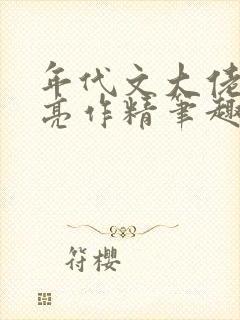 年代文大佬
亮作精笔趣
符樱